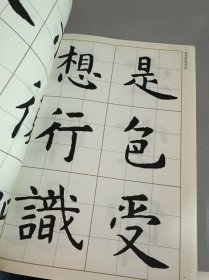 是色受
想行識